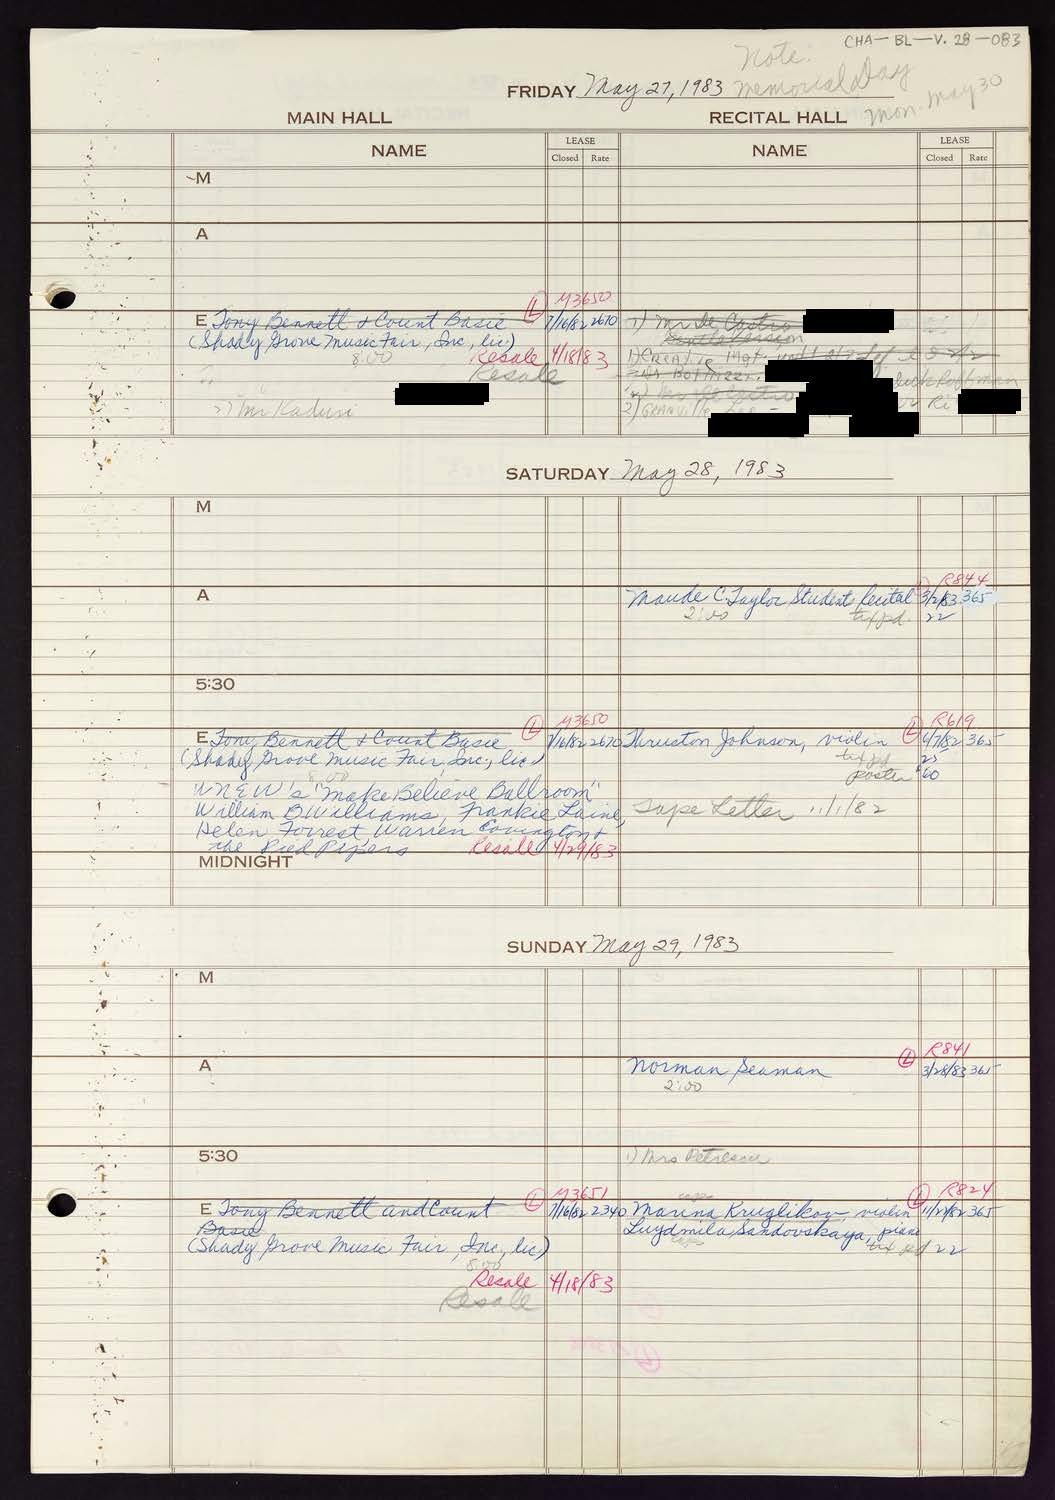 CHA-BL-V. 28-083
Note:
FRIDAY May 27, 1983 Memorial Day
Mon. May 30
MAIN HALL RECITAL HALL
NAME LEASE NAME LEASE
Closed Rate Closed Rate
M
A
(L) M3650
E Tony Bennett & Count Basie 7/16/82 2670 1) Mr De Castro
(Shady Grove Music Fair, Inc, lic)
8:00 Resale 4/18/83 1) Creative Mgt.
Resale
2) Mr Kaduri
2)
SATURDAY May 28, 1983
M
R844
A Maude C. Taylor Student Recital 3/2/83 365
2:00 tix pd. 22
5:30
(L) M3650 (L) R619
E Tony Bennett & Count Basie 7/16/82 2670 Thruston Johnson, violin 4/7/82 365
(Shady Grove Music Fair, Inc., lic) tix pd 25
8:00 poster 60
WNEW's "Make Believe Ballroom"
William B Williams, Frankie Laine, Tape Letter 11/1/82
Helen Forrest, Warren Covington &
the Pied Pipers Resale 4/29/83
MIDNIGHT
SUNDAY May 29, 1983
M
(L) R841
A Norman Seaman 3/28/83 365
2:00
5:30 1) Mrs Petrescu
(L) M3651 (L) R824
E Tony Bennett and Count 7/16/82 2340 Marina Kruglikov, violin 365
Basie Luydmila Sandovskaya, piano
(Shady Grove Music Fair, Inc, lic) tix pd 22
8:00
Resale 4/18/83
Resale